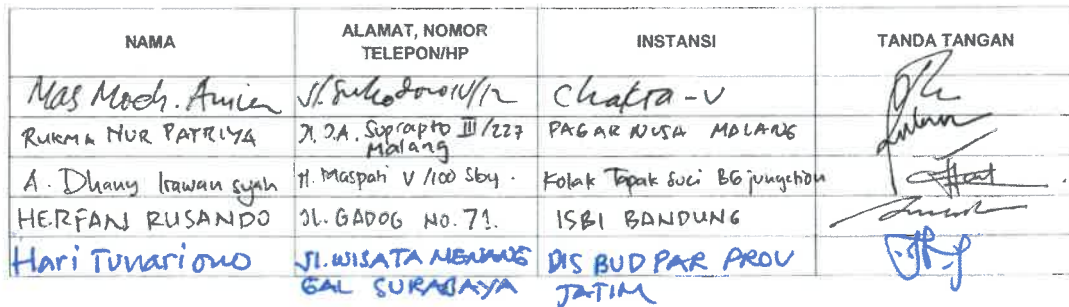 NAMA ALAMAT, NOMOR TELEPON/HP INSTANSI TANDA TANGAN
Mas Moch. Amien Jl. Sukodono IV/12 Chakra - V
RUKMA NUR PATRIYA Jl. J.A. Suprapto III/227 Malang PAGAR NUSA MALANG
A. Dhany Irawan syah Jl. Maspati V/100 Sby. Kolak Tapak Suci BG jungction
HERFAN RUSANDO JL. GADOG NO. 71. ISBI BANDUNG
Hari Tunariono Jl. WISATA MENANG GAL SURABAYA DIS BUD PAR PROV JATIM